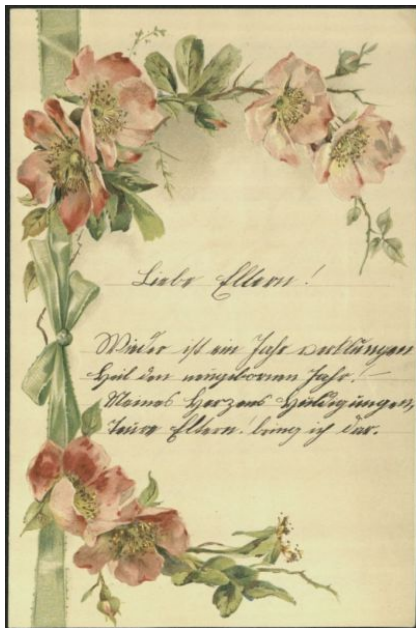 Liebe Eltern!
Wieder ist ein Jahr verklungen
Heil dem neugebornen Jahr!
Meines Herzens Huldigungen,
Teure Eltern! bring ich dar.